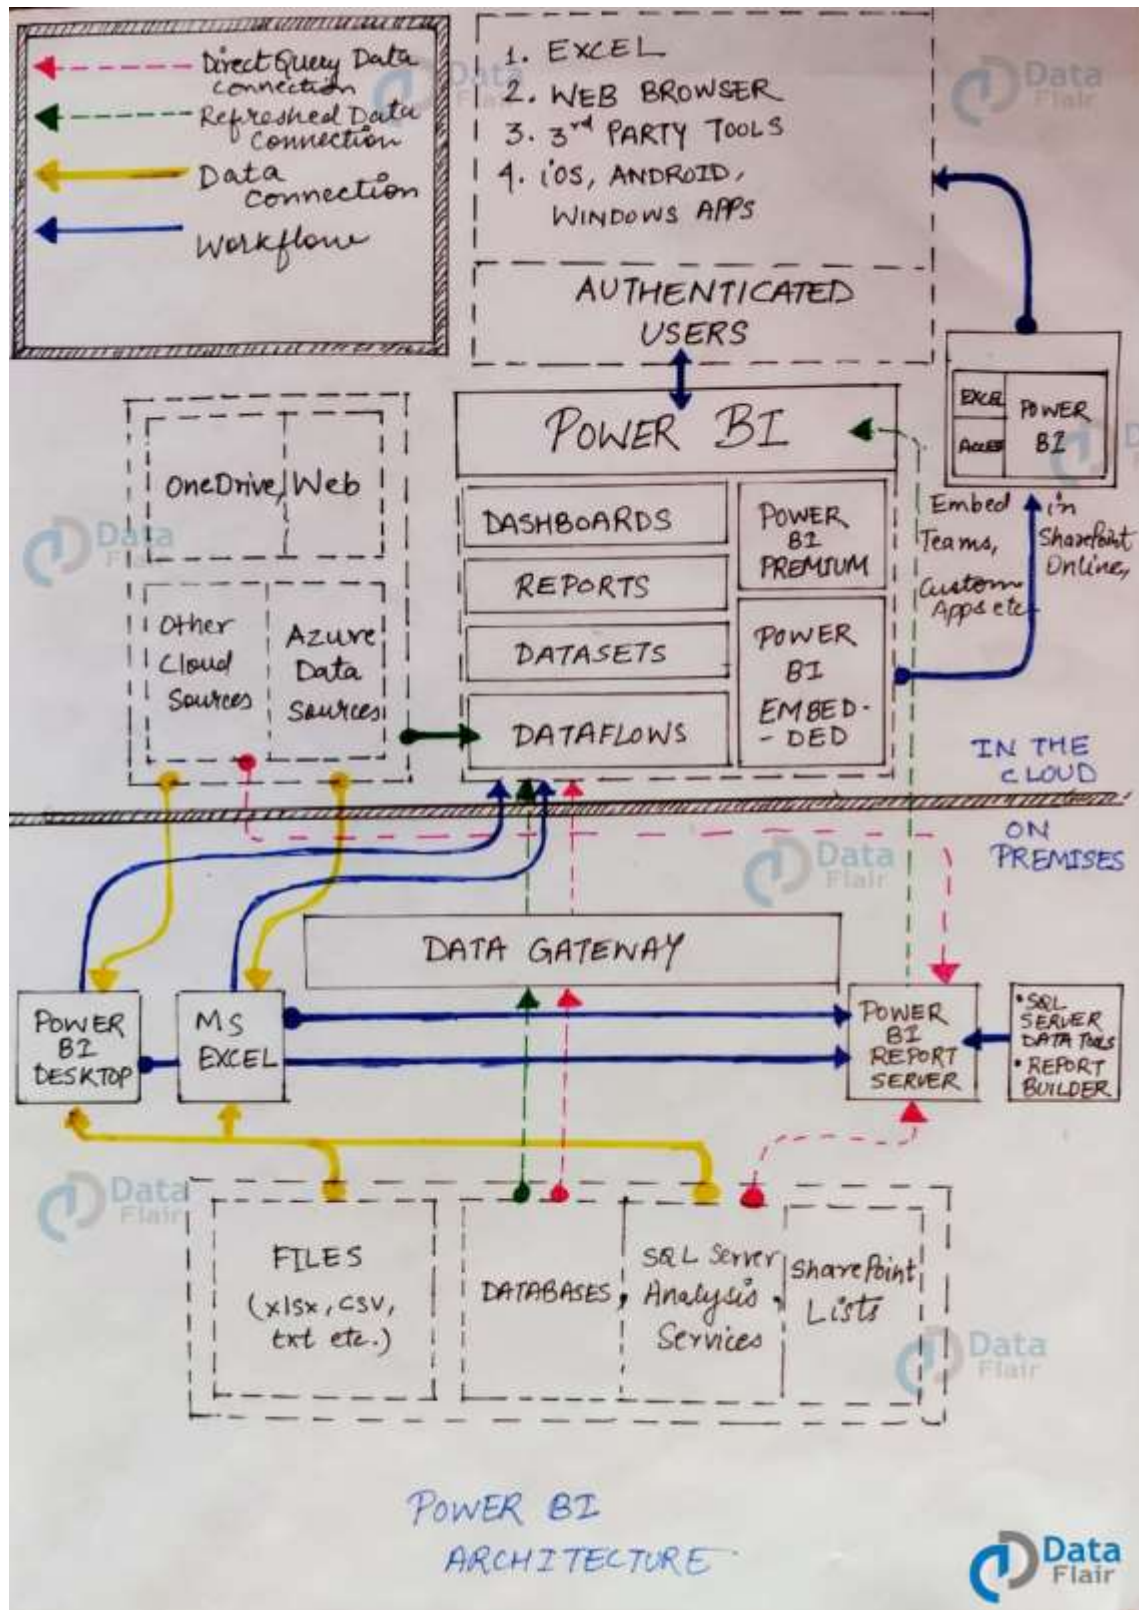 Direct Query Data
connection
Refreshed Data
Connection
Data
Connection
Workflow
1. EXCEL
2. WEB BROWSER
3. 3rd PARTY TOOLS
4. iOS, ANDROID,
WINDOWS APPS
AUTHENTICATED
USERS
EXCEL
ACCES
POWER
BI
OneDrive, Web
Other
Cloud
Sources
Azure
Data
Sources
POWER BI
DASHBOARDS
REPORTS
DATASETS
DATAFLOWS
POWER
BI
PREMIUM
POWER
BI
EMBED-
-DED
Embed in
Teams, SharePoint
Online,
Custom
Apps etc
IN THE
CLOUD
ON
PREMISES
DATA GATEWAY
POWER
BI
DESKTOP
MS
EXCEL
POWER
BI
REPORT
SERVER
• SQL
SERVER
DATA TOOLS
• REPORT
BUILDER
FILES
(xlsx, csv,
txt etc.)
DATABASES,
SQL Server
Analysis
Services
SharePoint
Lists
POWER BI
ARCHITECTURE
Data
Flair
Data
Flair
Data
Flair
Data
Flair
Data
Flair
Data
Flair
Data
Flair